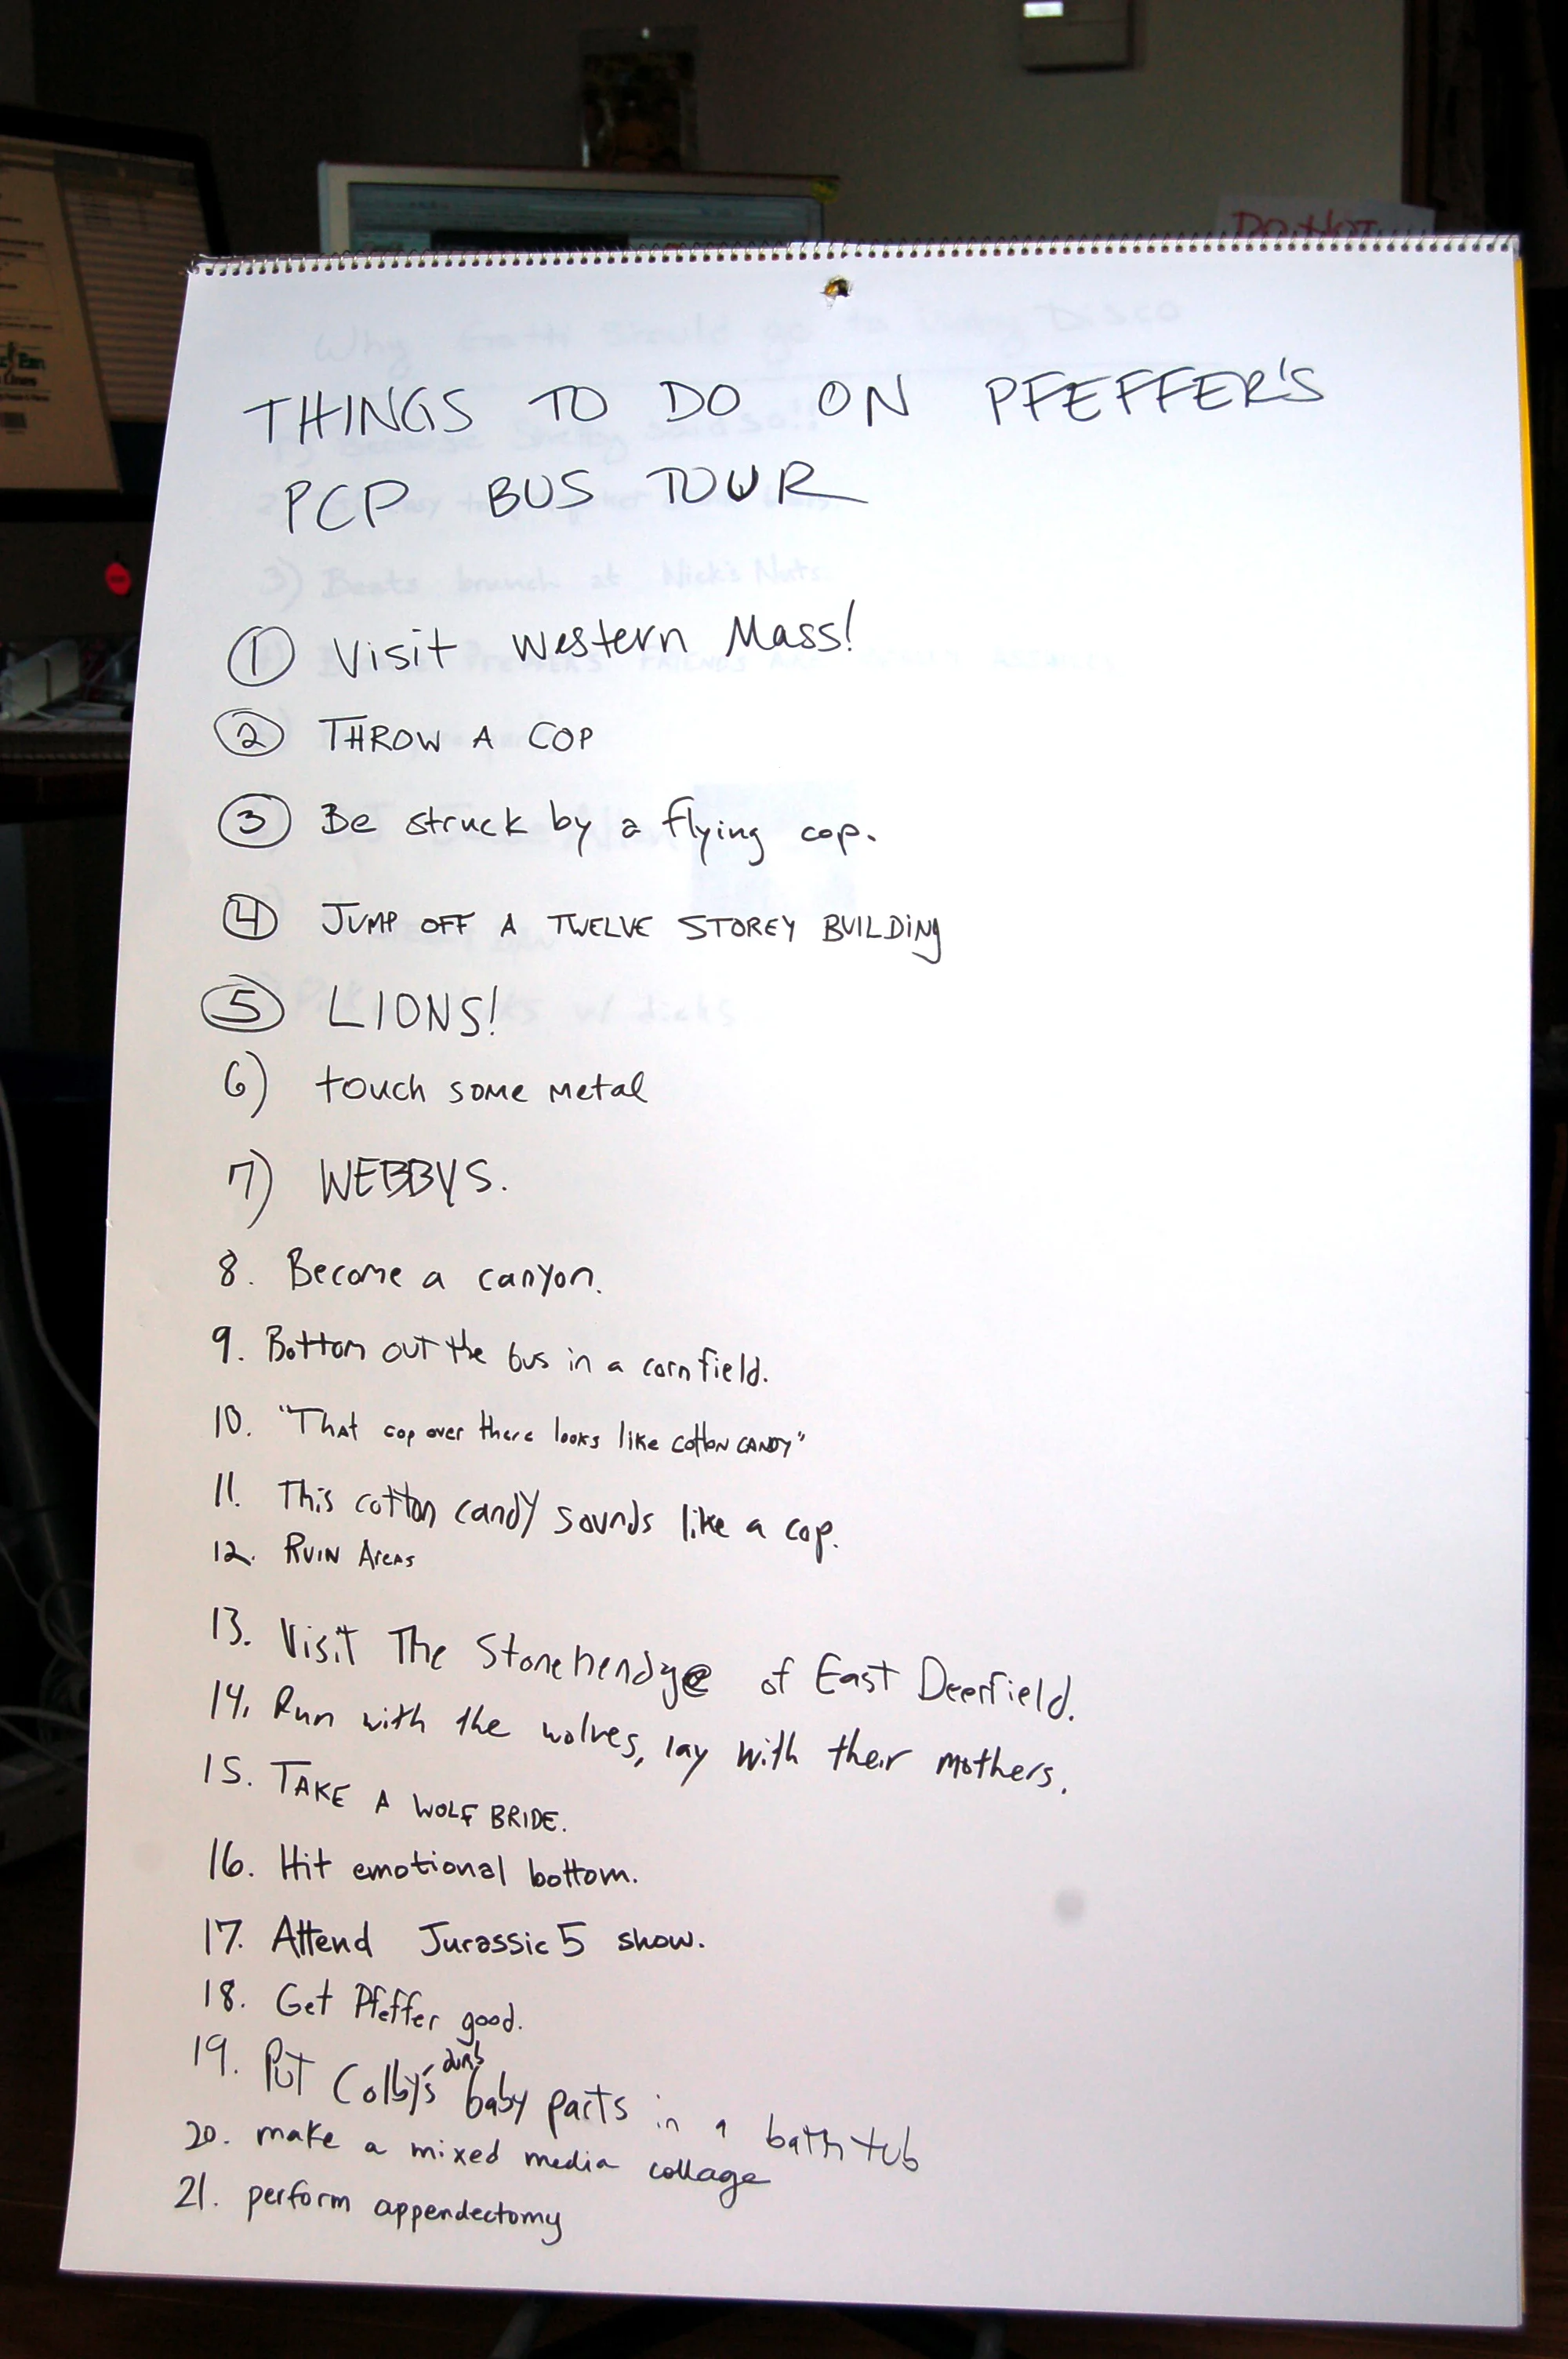 DO NOT
THINGS TO DO ON PFEFFER'S
PCP BUS TOUR
1 Visit Western Mass!
2 THROW A COP
3 Be struck by a flying cop.
4 JUMP OFF A TWELVE STOREY BUILDING
5 LIONS!
6) touch some metal
7) WEBBYS.
8. Become a canyon.
9. Bottom out the bus in a cornfield.
10. "That cop over there looks like cotton CANDY"
11. This cotton candy sounds like a cop.
12. RUIN AreAs
13. Visit The Stonehendge of East Deerfield.
14. Run with the wolves, lay with their mothers.
15. TAKE A WOLF BRIDE.
16. Hit emotional bottom.
17. Attend Jurassic 5 show.
18. Get Pfeffer good.
19. Put Colby's dumb baby parts in a bath tub
20. make a mixed media collage
21. perform appendectomy